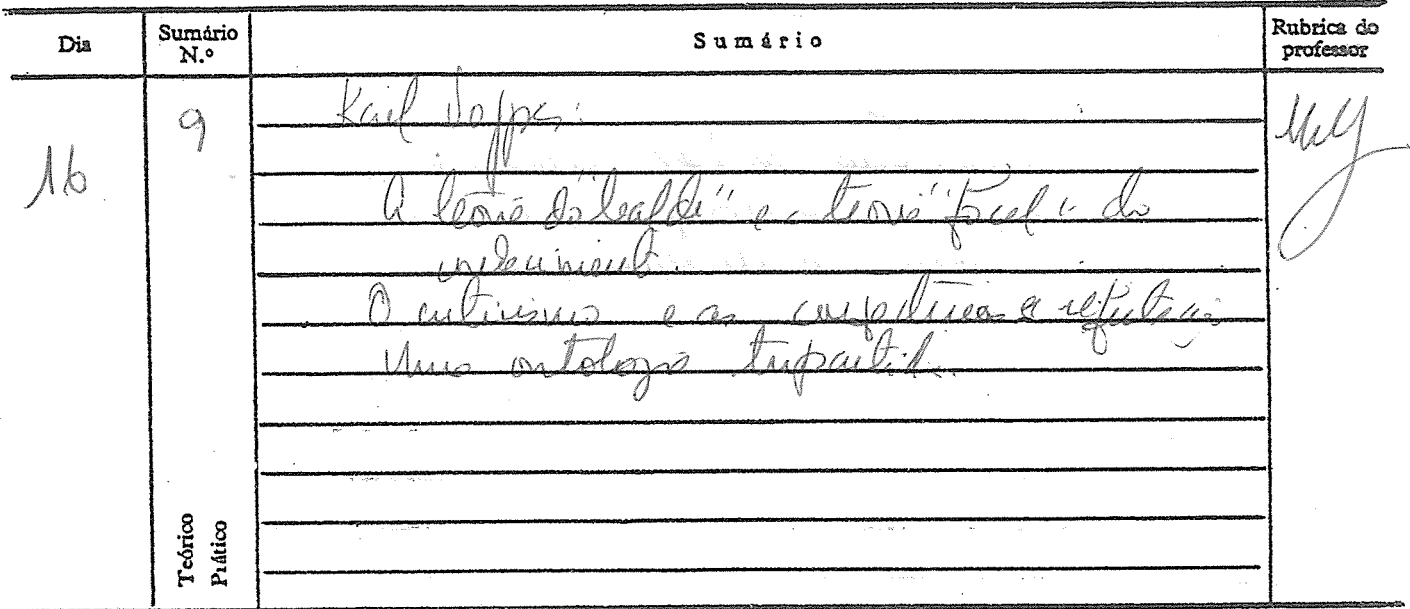 Dia
Sumário N.º
Sumário
Rubrica do professor
16
9
Karl Popper:
A teoria do "balde" e a teoria "farol" do
conhecimento.
O criticismo e as conjecturas e refutações
Uma ontologia tripartida.
Teórico
Prático